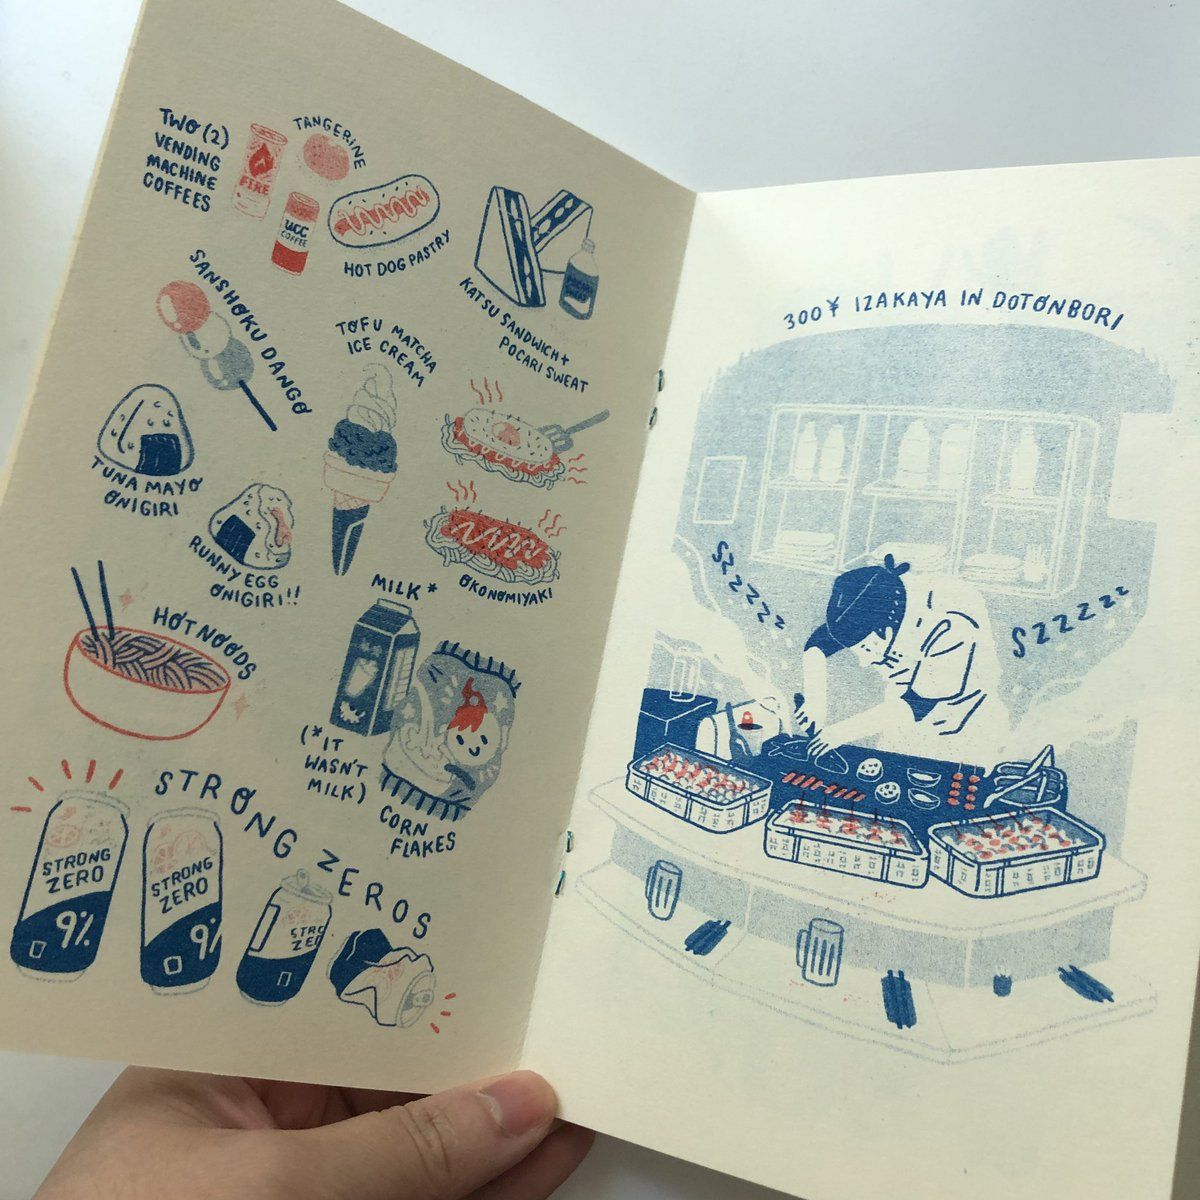 TWO (2)
VENDING
MACHINE
COFFEES
FIRE
UCC
COFFEE
TANGERINE
HOT DOG PASTRY
KATSU SANDWICH +
POCARI SWEAT
SANSHOKU DANGO
TOFU MATCHA
ICE CREAM
TUNA MAYO
ONIGIRI
RUNNY EGG
ONIGIRI!!
OKONOMIYAKI
HOT NOODS
MILK*
(*IT
WASN'T
MILK)
CORN
FLAKES
STRONG ZEROS
STRONG
ZERO
9%
STRONG
ZERO
9%
STRO
ZER
300¥ IZAKAYA IN DOTONBORI
SZZZZZ
SZZZZZZ